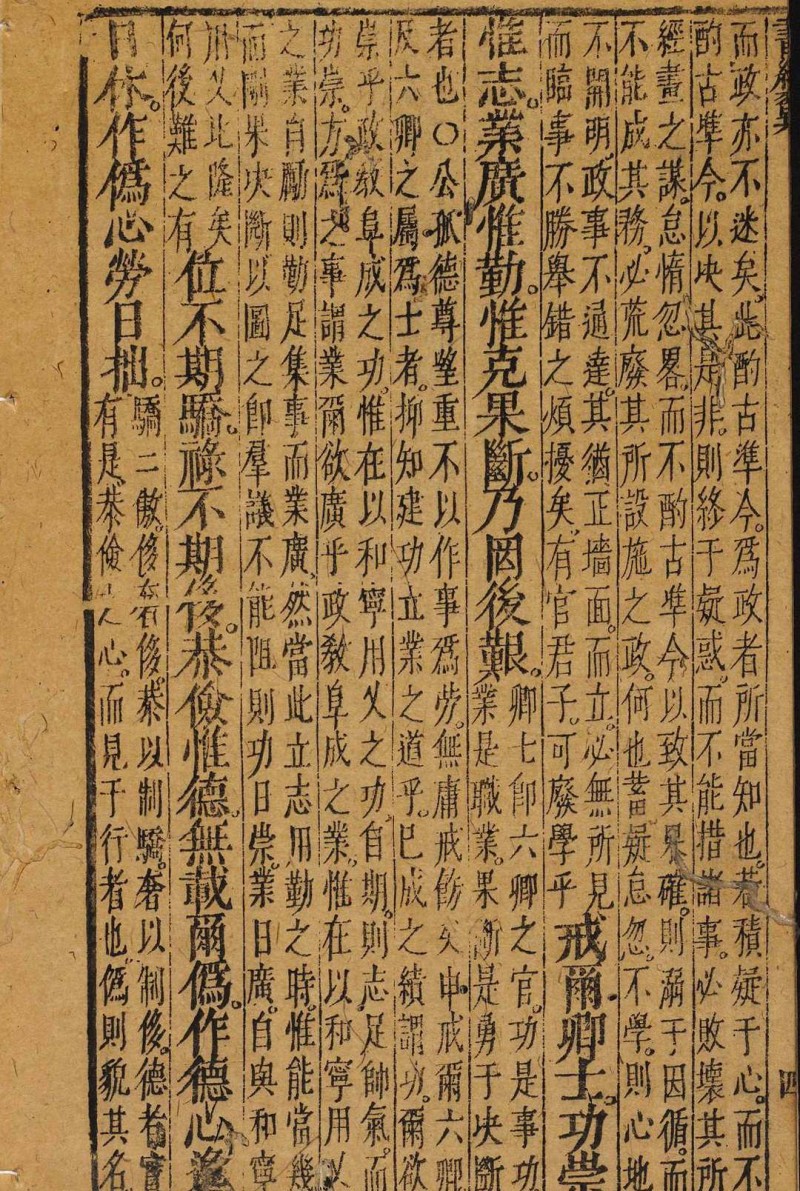 而政亦不迷矣。此酌古準今。爲政者所當知也。若積疑于心。而不
酌古準今。以决其是非。則終于疑惑。而不能措諸事。必敗壞其所
經畫之謀。怠惰忽畧。而不酌古準今以致其果確。則溺于因循。而
不能成其務。必荒廢其所設施之政。何也蓄疑怠忽。不學。則心地
不開明。政事不通達。其猶正墻面。而立。必無所見
而臨事不勝舉錯之煩擾矣。有官君子。可廢學乎
戒爾卿士。功崇
惟志。業廣惟勤。惟克果斷。乃罔後艱。
卿士卽六卿之官。功是事功
業是職業。果斷是勇于决斷
者也○公孤德尊望重不以作事爲勞。無庸戒飭矣申戒爾六卿
及六卿之屬爲士者。抑知建功立業之道乎。已成之績謂功。爾欲
崇乎政敎阜成之功。惟在以和寧用乂之功自期。則志足帥氣。而
功崇。方爲之事謂業爾欲廣乎政敎阜成之業。惟在以和寧用乂
之業自勵則勤足集事而業廣。然當此立志用勤之時。惟能當幾
而剛果决斷以圖之卽羣議不能阻則功日崇。業日廣。自與和寧
用乂比隆矣
何後難之有
位不期驕。祿不期侈。恭儉惟德。無載爾僞。作德心逸
日休。作僞心勞日拙。
驕二傲。侈奢侈。恭以制驕。奢以制侈。德者實
有是恭儉之心。而見于行者也。僞則貌其名
四